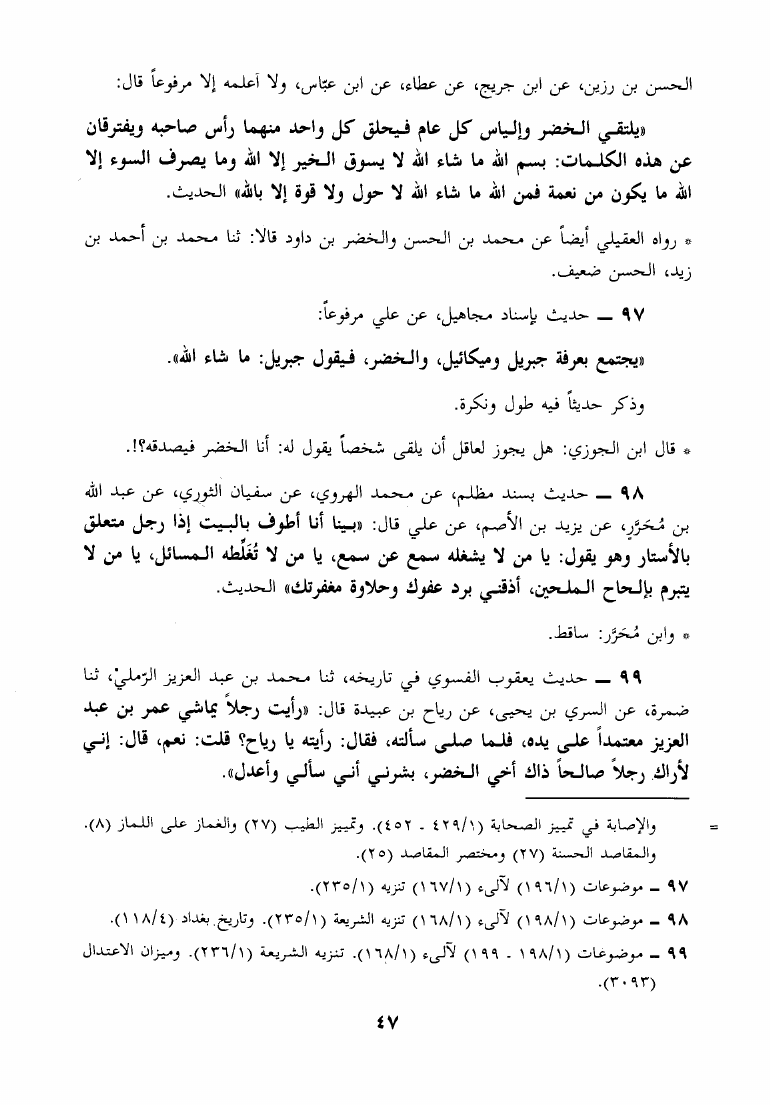 الحسن بن رزين، عن ابن جريج، عن عطاء، عن ابن عبّاس، ولا أعلمه إلا مرفوعاً قال:
«يلتقي الخضر وإلياس كل عام فيحلق كل واحد منهما رأس صاحبه ويفترقان
عن هذه الكلمات: بسم الله ما شاء الله لا يسوق الخير إلا الله وما يصرف السوء إلا
الله ما يكون من نعمة فمن الله ما شاء الله لا حول ولا قوة إلا بالله» الحديث.
* رواه العقيلي أيضاً عن محمد بن الحسن والخضر بن داود قالا: ثنا محمد بن أحمد بن
زيد، الحسن ضعيف.
٩٧ ـ حديث بإسناد مجاهيل، عن علي مرفوعاً:
«يجتمع بعرفة جبريل وميكائيل، والخضر، فيقول جبريل: ما شاء الله».
وذكر حديثاً فيه طول ونكرة.
* قال ابن الجوزي: هل يجوز لعاقل أن يلقى شخصاً يقول له: أنا الخضر فيصدقه؟!.
٩٨ ـ حديث بسند مظلم، عن محمد الهروي، عن سفيان الثوري، عن عبد الله
بن مُحَرَّرٍ، عن يزيد بن الأصم، عن علي قال: «بينا أنا أطوف بالبيت إذا رجل متعلق
بالأستار وهو يقول: يا من لا يشغله سمع عن سمع، يا من لا تُغَلِّطه المسائل، يا من لا
يتبرم بإلحاح الملحين، أذقني برد عفوك وحلاوة مغفرتك» الحديث.
* وابن مُحَرَّر: ساقط.
٩٩ ـ حديث يعقوب الفسوي في تاريخه، ثنا محمد بن عبد العزيز الرّمليّ، ثنا
ضمرة، عن السري بن يحيى، عن رياح بن عبيدة قال: «رأيت رجلاً يماشي عمر بن عبد
العزيز معتمداً على يده، فلما صلى سألته، فقال: رأيته يا رياح؟ قلت: نعم، قال: إني
لأراك رجلاً صالحاً ذاك أخي الخضر، بشرني أني سألي وأعدل».
= والإصابة في تمييز الصحابة (١/٤٢٩ ـ ٤٥٢). وتمييز الطيب (٢٧) والغماز على اللماز (٨).
والمقاصد الحسنة (٢٧) ومختصر المقاصد (٢٥).
٩٧ ـ موضوعات (١/١٩٦) لآلىء (١/١٦٧) تنزيه (١/٢٣٥).
٩٨ ـ موضوعات (١/١٩٨) لآلىء (١/١٦٨) تنزيه الشريعة (١/٢٣٥). وتاريخ بغداد (٤/١١٨).
٩٩ ـ موضوعات (١/١٩٨ ـ ١٩٩) لآلىء (١/١٦٨). تنزيه الشريعة (١/٢٣٦). وميزان الاعتدال
(٣٠٩٣).
٤٧